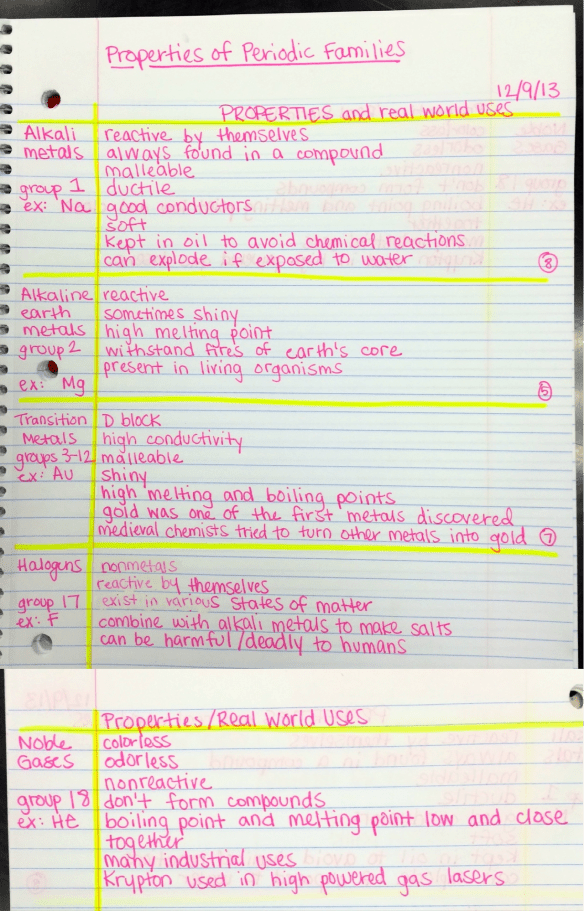 Properties of Periodic Families
12/9/13
PROPERTIES and real world uses
Alkali reactive by themselves
metals always found in a compound
malleable
group 1 ductile
ex: Na good conductors
soft
kept in oil to avoid chemical reactions
can explode if exposed to water 8
Alkaline reactive
earth sometimes shiny
metals high melting point
group 2 withstand fires of earth's core
present in living organisms
ex: Mg 5
Transition D block
Metals high conductivity
groups 3-12 malleable
ex: Au shiny
high melting and boiling points
gold was one of the first metals discovered
medieval chemists tried to turn other metals into gold 7
Halogens nonmetals
reactive by themselves
group 17 exist in various states of matter
ex: F combine with alkali metals to make salts
can be harmful/deadly to humans
Properties/Real World Uses
Noble colorless
Gases odorless
nonreactive
group 18 don't form compounds
ex: He boiling point and melting point low and close
together
many industrial uses
Krypton used in high powered gas lasers